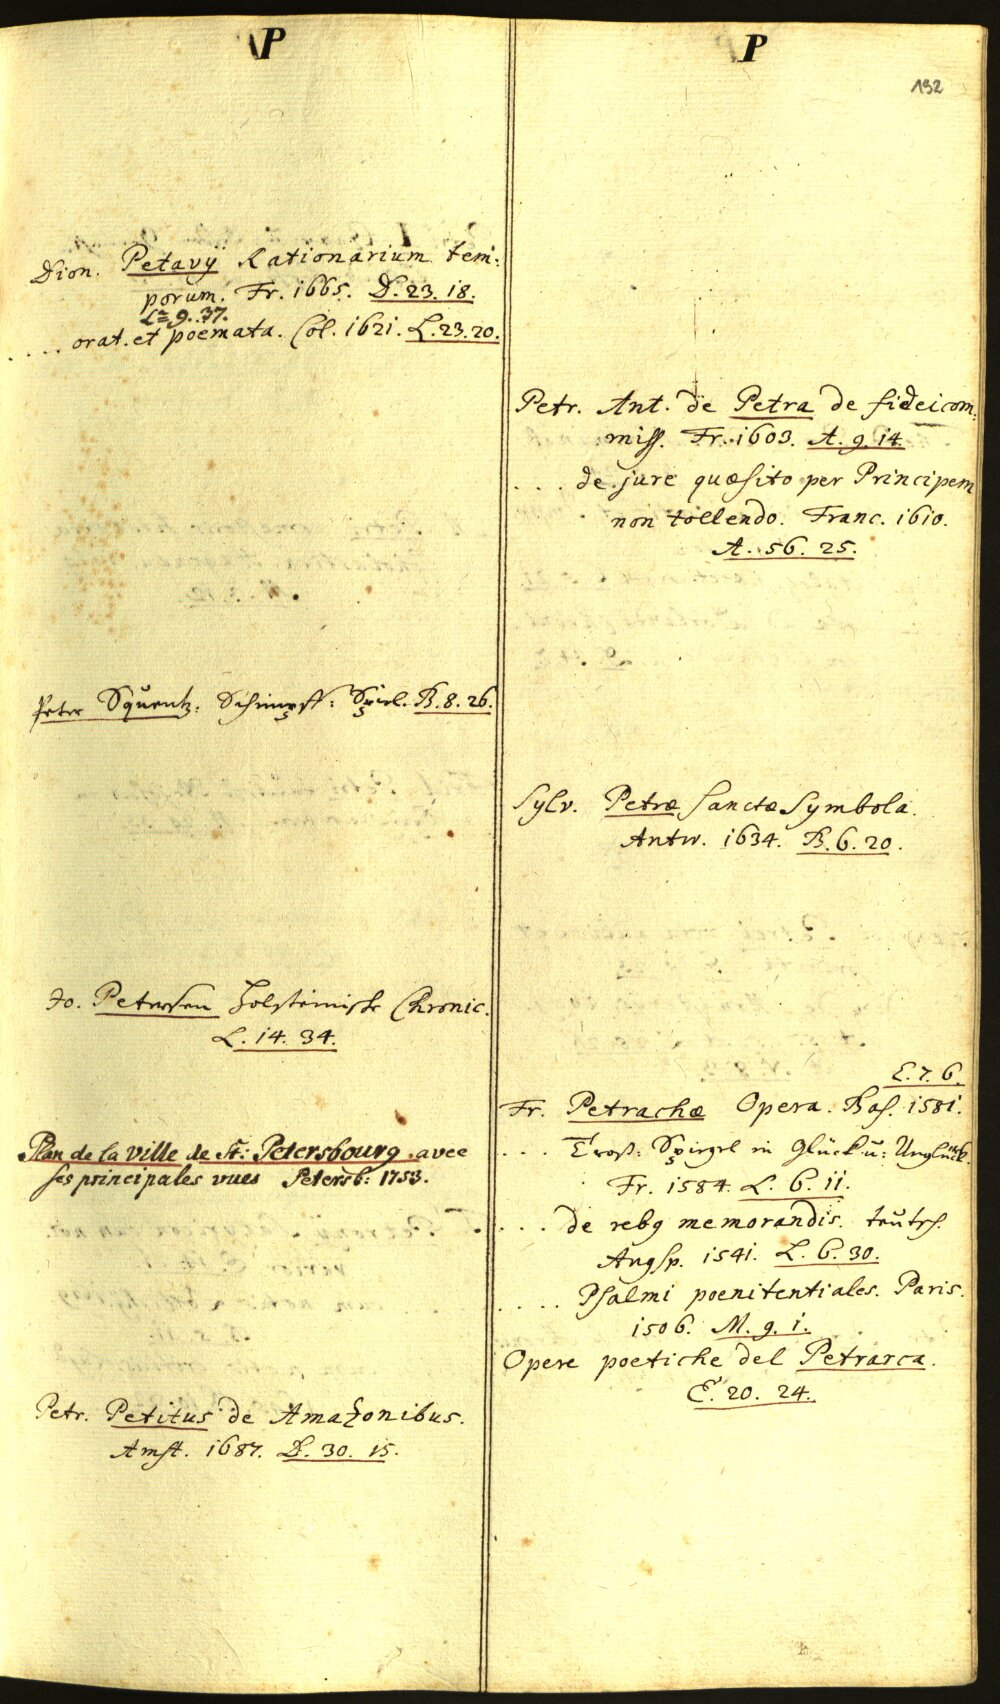 P
Dion. Petavÿ Rationarium tem:
porum. Fr. 1665. D. 23. 18.
L= 9. 37.
.... orat. et poemata. Col. 1621. L. 23. 20.
Peter Squentz: Schimpff: Spiel. B. 8. 26.
Jo. Petersen Holsteinische Chronic.
L. 14. 34.
Plan de la ville de St: Petersbourg avec
ses principales vues Petersb: 1753.
Petr. Petitus de Amazonibus.
Amst. 1687. D. 30. 15.
P
192
Petr. Ant. de Petra de fideicom:
miss. Fr. 1603. A. 9. 14.
... de jure quæsito per Principem
non tollendo. Franc. 1610.
A. 56. 25.
Sylv. Petræ Sanctæ Symbola.
Antw. 1634. B. 6. 20.
E. 7. 6.
Fr. Petrachæ Opera. Bas. 1581.
... Trost: Spiegel in Glück u: Unglück.
Fr. 1584. L. 6. 11.
... de reb9 memorandis. teutsch.
Augsp. 1541. L. 6. 30.
.... Psalmi poenitentiales. Paris.
1506. M. 9. 1.
Opere poetiche del Petrarca.
E. 20. 24.